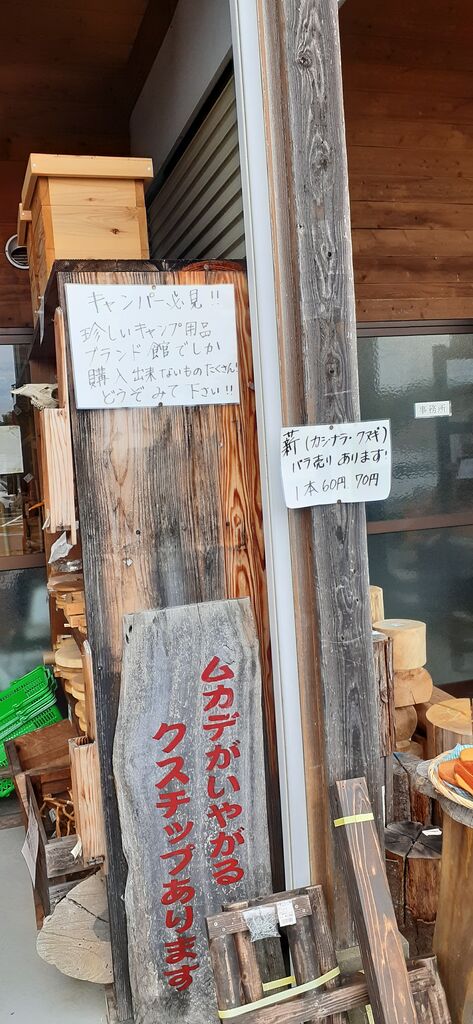 キャンパー必見!!
珍しいキャンプ用品
ブランド館でしか
購入出来ないものたくさん!
どうぞみて下さい!!
薪(カシナラ・クヌギ)
バラ売りあります
1本60円.70円
事務所
ムカデがいやがる
クスチップあります